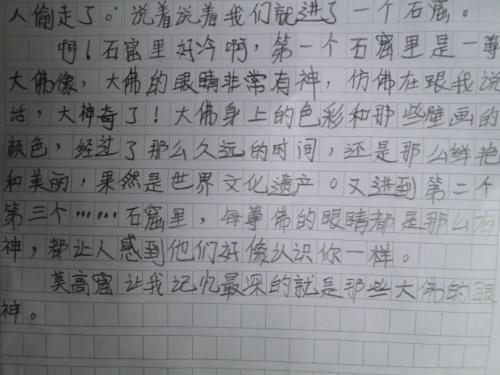 人偷走了。说着说着我们就进了一个石窟。
啊！石窟里好冷啊，第一个石窟里是一尊
大佛像，大佛的眼睛非常有神，仿佛在跟我说
话，大神奇了！大佛身上的色彩和那些壁画的
颜色，经过了那么久远的时间，还是那么鲜艳
和美丽，果然是世界文化遗产。又进到第二个
第三个……石窟里，每尊佛的眼睛都是那么有
神，都让人感到他们好像认识你一样。
莫高窟让我记忆最深的就是那些大佛的眼
神。